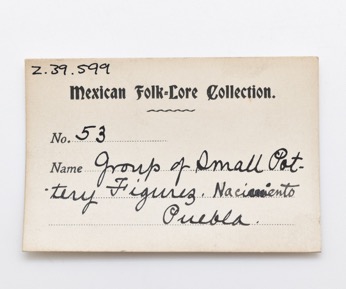 Z.39.599
Mexican Folk-Lore Collection.
No. 53
Name Group of Small Pot-
tery Figures. Nacimiento
Puebla.